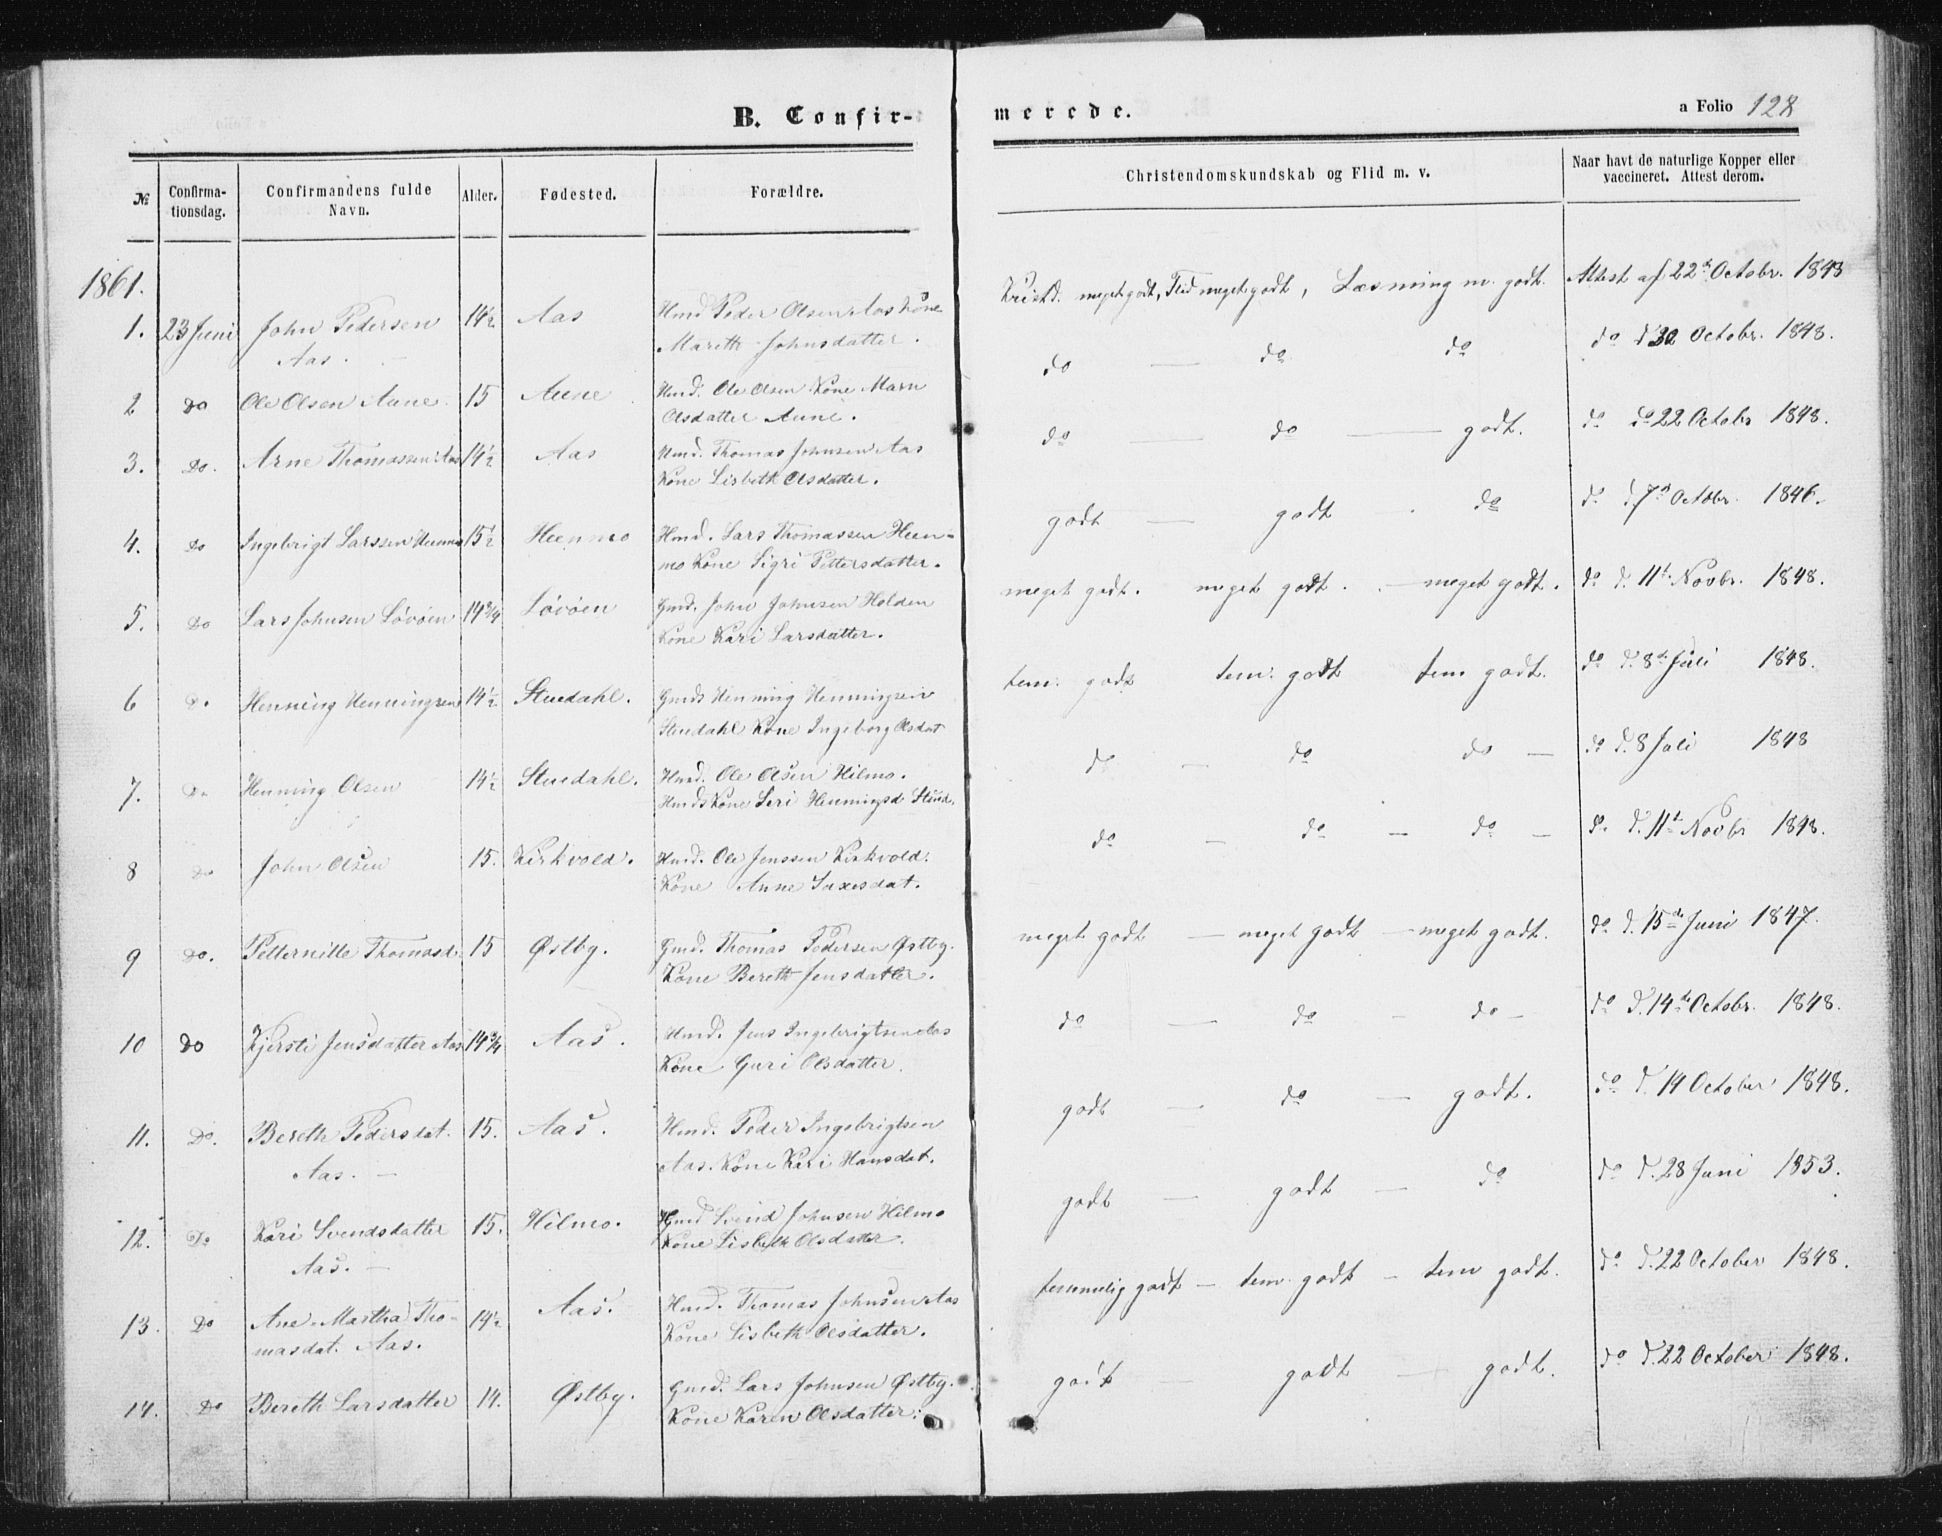 B. Confir-
merede.
a Folio 128
№
Confirma-
tionsdag.
Confirmandens fulde
Navn.
Alder.
Fødested.
Forældre.
Christendomskundskab og Flid m. v.
Naar havt de naturlige Kopper eller
vaccineret. Attest derom.
1861.
1. 23 Juni John Pedersen 14½ Aas Hmd Peder Olsen Aas Kone Kristd. meget godt, Flid meget godt, Læsning m. godt. Attest af 22d Octobr. 1848
Aas. Mareth Johnsdatter.
2 Do Ole Olsen Aune 15 Aune Hmd. Ole Olsen Kone Marn do — do do do d 22 Octobr. 1848.
Olsdatter Aune.
3. Do. Arne Thomassen Aas 14½ Aas Hmd. Thomas Johnsen Aas do — do — godt. do do 22 Octobr 1848.
Kone Lisbeth Olsdatter.
4. Do Ingebrigt Larssen Heenmo 15½ Heenmo Hmd. Lars Thomassen Heen- godt — godt do do d. 7d Octobr. 1846.
mo Kone Sigri Pettersdatter.
5. Do Lars Johnsen Løvøen 14¾ Løvøen Gmd. John Johnsen Holden meget godt. meget godt. meget godt. do d. 11t Novbr. 1848.
Kone Kari Larsdatter.
6 Do Henning Henningsen 14½ Stuedahl. Gmds Henning Henningsen tem. godt tem. godt tem godt. do d. 8d Juli 1848.
Stuedahl Kone Ingeborg Olsdat
7. Do Henning Olsen 14½ Stuedahl. Hmd. Ole Olsen Hilmo. do — do do — do d. 8 Juli 1848
Hmds Kone Seri Henningsd Stued.
8 do John Olsen 15. Kirkvold. Hmd. Ole Jenssen Kirkvold. do — do — do — do d. 11t Novbr 1848.
Kone Anne Saxesdat.
9 Do. Petternille Thomasd. 15 Østby. Gmd. Thomas Pedersen Østby. meget godt — meget godt — meget godt. do d. 15de Juni 1847.
Kone Bereth Jensdatter.
10 Do Kjersti Jensdatter Aas 14¾ Aas. Hmd. Jens Ingebrigtsen Aas do — do — do — do d. 14de Octobr. 1848.
Kone Guri Olsdatter.
11. Do. Bereth Pedersdat. 15. Aas. Hmd. Peder Ingebrigtsen godt — do — godt. do d. 14 October 1848.
Aas. — Aas. Kone Kari Hansdat.
12. Do Kari Svendsdatter 15. Hilmo. Hmd Svend Johnsen Hilmo godt — godt — do do d. 28 Juni 1853.
Aas. — Kone Lisbeth Olsdatter.
13. Do Ane Martha Tho- 14½ Aas. Hmd. Thomas Johnsen Aas temmelig godt — tem. godt — tem godt. do d. 22 October 1848.
masdat. Aas. Kone Lisbeth Olsdatter.
14. Do Bereth Larsdatter 14. Østby. Gmd. Lars Johnsen Østby. godt — godt — godt. do d. 22 October 1848.
Kone Karen Olsdatter.